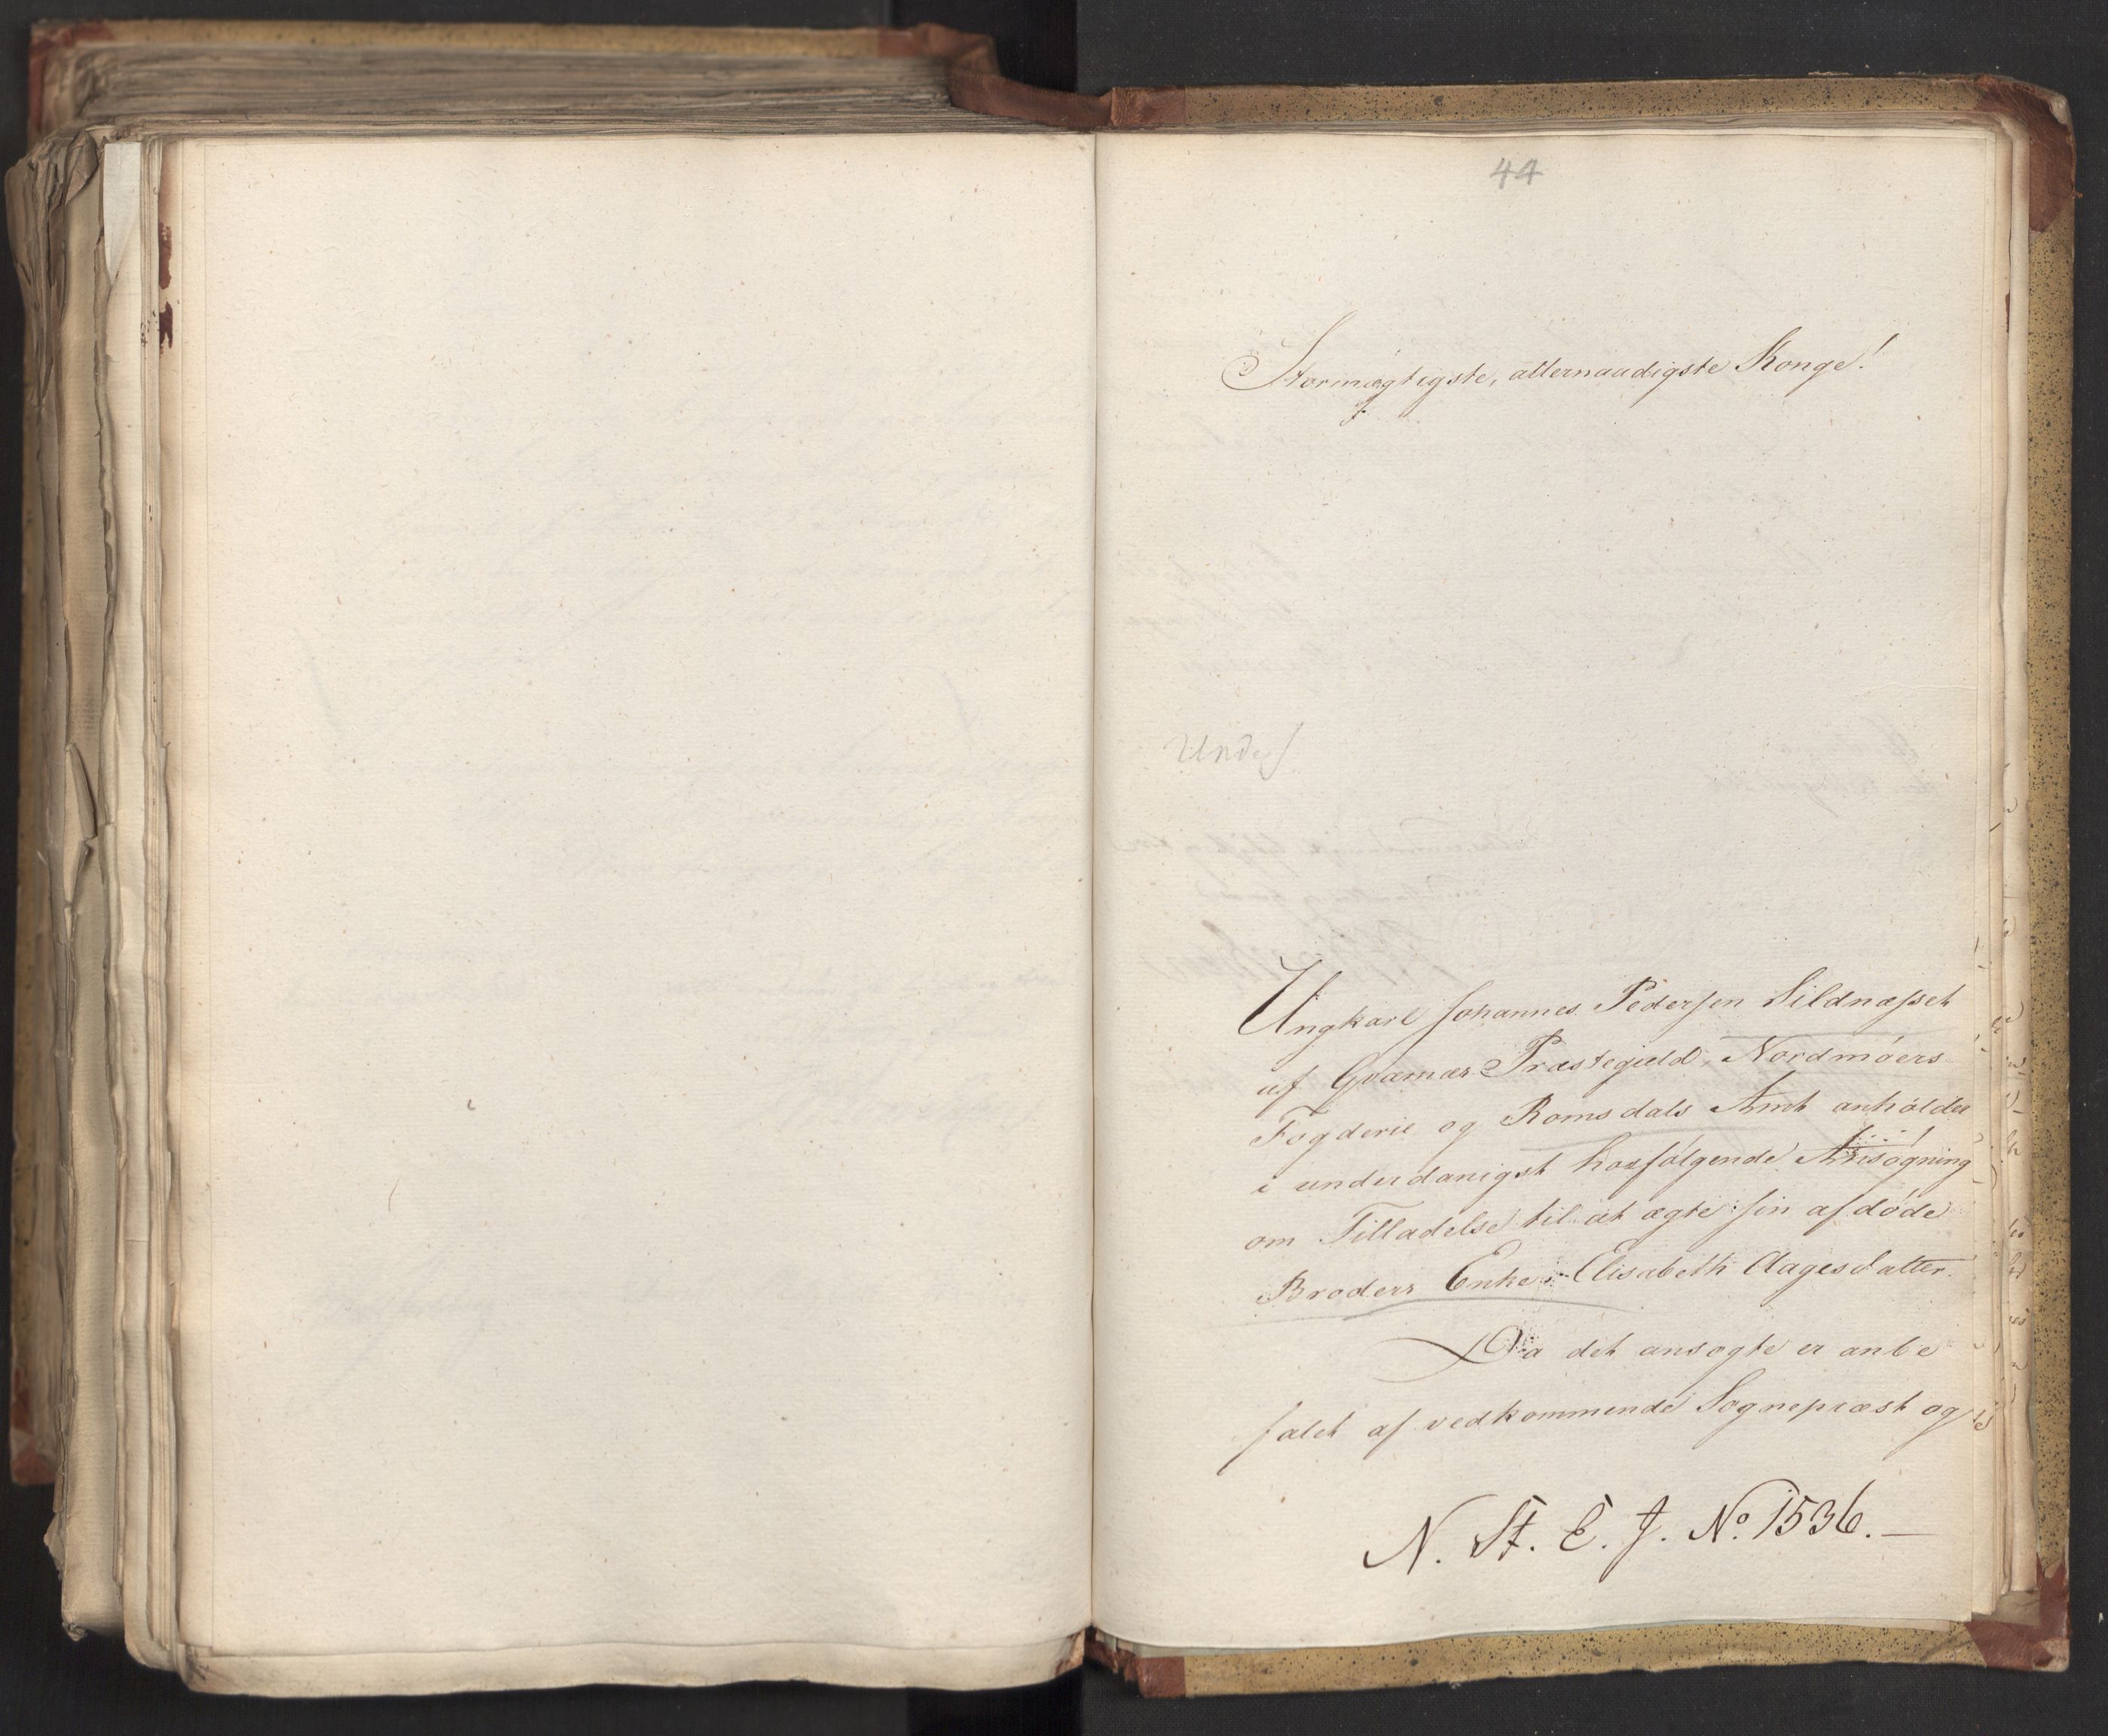 44
Stormægtigste, allernaadigste Konge!
Ungkarl Johannes Pedersen Sildnæsset
af Qværnæs Præstegield, Nordmöers
Fogderie og Romsdals Amt anholder
i underdanigst hosfölgende Ansögning
om Tilladelse til at ægte sin afdöde
Broders Enke Elisabeth Aagesdatter.
Da det ansögte er anbe
falet af vedkommende Sognepræst og
N. St. E. J. No. 1536.